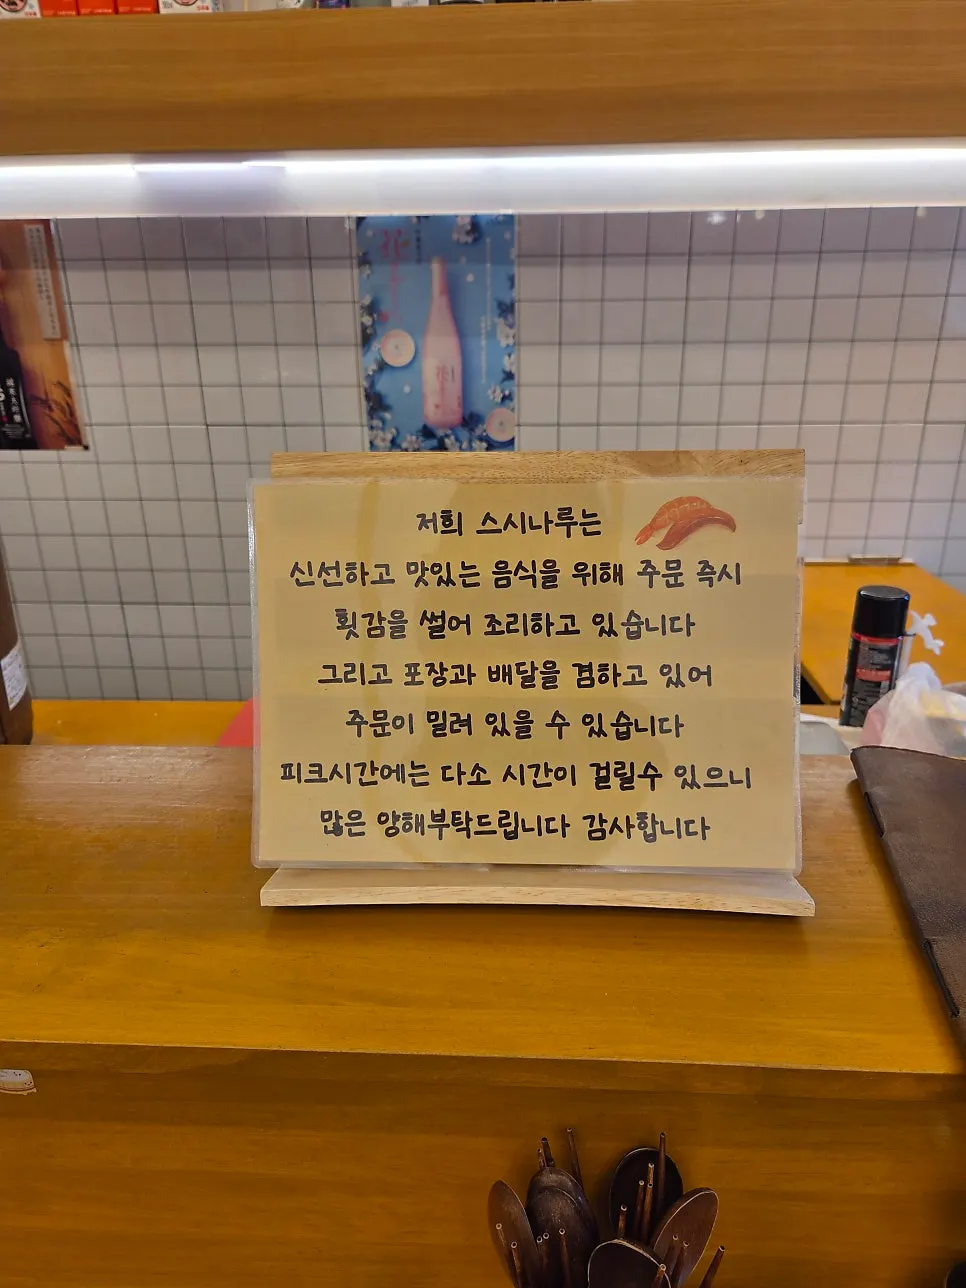 저희 스시나루는
신선하고 맛있는 음식을 위해 주문 즉시
횟감을 썰어 조리하고 있습니다
그리고 포장과 배달을 겸하고 있어
주문이 밀려 있을 수 있습니다
피크시간에는 다소 시간이 걸릴수 있으니
많은 양해부탁드립니다 감사합니다